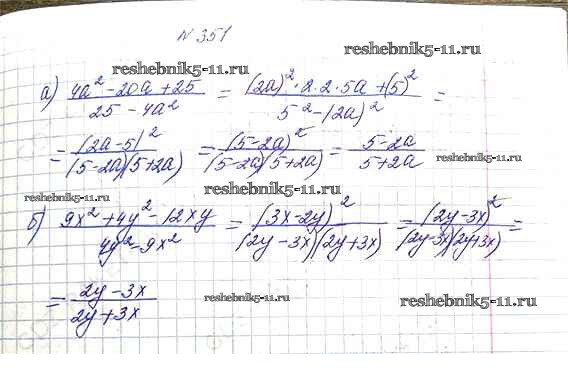 № 351
reshebnik5-11.ru
reshebnik5-11.ru reshebnik5-11.ru
а) (4a² - 20a + 25)/(25 - 4a²) = ((2a)² · 2 · 2 · 5a + (5)²)/(5² - (2a)²) =
= (2a-5)²/((5-2a)(5+2a)) = (5-2a)²/((5-2a)(5+2a)) = (5-2a)/(5+2a)
reshebnik5-11.ru reshebnik5-11.ru
reshebnik5-11.ru reshebnik5-11.ru
б) (9x² + 4y² - 12xy)/(4y² - 9x²) = (3x-2y)²/((2y-3x)(2y+3x)) = (2y-3x)²/((2y-3x)(2y+3x)) =
= (2y-3x)/(2y+3x)
reshebnik5-11.ru reshebnik5-11.ru
reshebnik5-11.ru